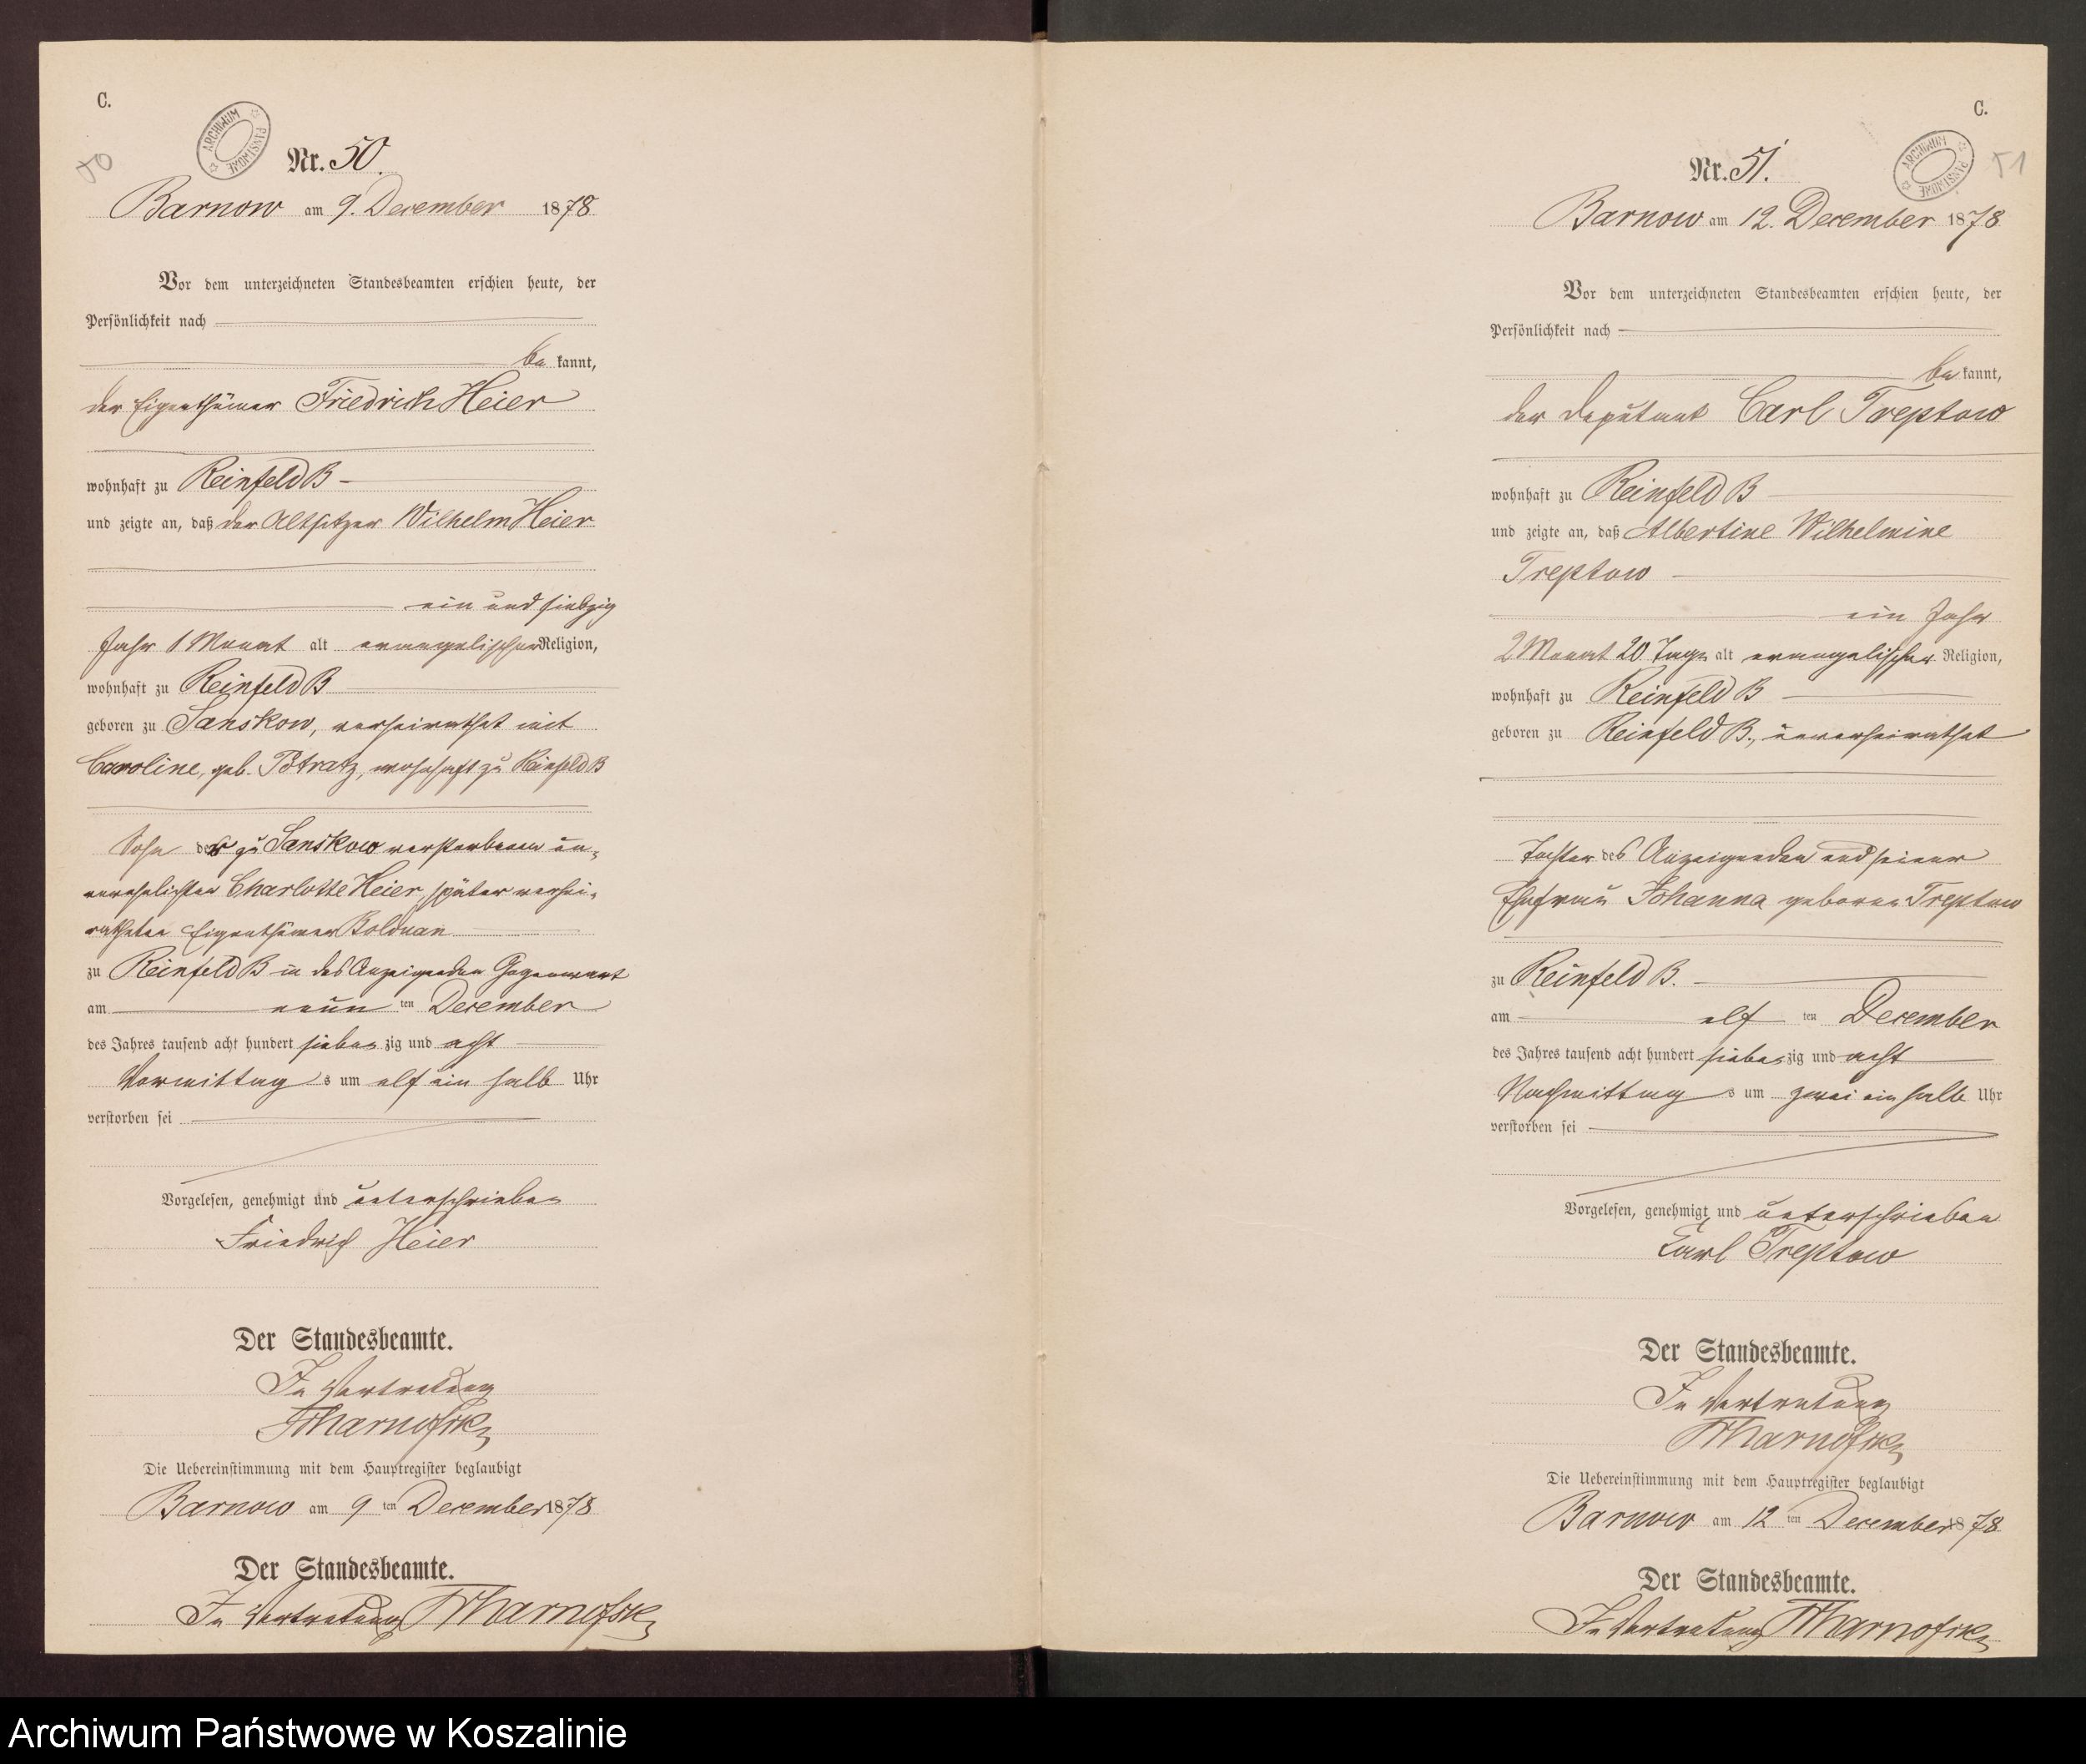 C.
ARCHIWUM PAŃSTWOWE
50
Nr. 50.
Barnow am 9. December 1878
Vor dem unterzeichneten Standesbeamten erschien heute, der
Persönlichkeit nach
be kannt,
der Eigenthümer Friedrich Heier
wohnhaft zu Reinfeld B
und zeigte an, daß der Altsitzer Wilhelm Heier
ein und siebzig
Jahr 1 Monat alt evangelischer Religion,
wohnhaft zu Reinfeld B
geboren zu Sanskow, verheirathet mit
Caroline, geb. Potratz, wohnhaft zu Reinfeld B
Sohn der zu Sanskow verstorbenen un-
verehelichten Charlotte Heier, später verhei-
ratheten Eigenthümer Bolduan
zu Reinfeld B in des Anzeigenden Gegenwart
am neun ten December
des Jahres tausend acht hundert sieben zig und acht
Vormittag s um elf ein halb Uhr
verstorben sei
Vorgelesen, genehmigt und unterschrieben
Friedrich Heier
Der Standesbeamte.
In Vertretung
Die Uebereinstimmung mit dem Hauptregister beglaubigt
Barnow am 9 ten December 1878
Der Standesbeamte.
In Vertretung
C.
ARCHIWUM PAŃSTWOWE
51
Nr. 51.
Barnow am 12. December 1878
Vor dem unterzeichneten Standesbeamten erschien heute, der
Persönlichkeit nach
be kannt,
der Deputant Carl Treptow
wohnhaft zu Reinfeld B
und zeigte an, daß Albertine Wilhelmine
Treptow
ein Jahr
2 Monat 20 Tage alt evangelischer Religion,
wohnhaft zu Reinfeld B
geboren zu Reinfeld B., unverheirathet
Tochter des Anzeigenden und seiner
Ehefrau Johanna geborene Treptow
zu Reinfeld B.
am elf ten December
des Jahres tausend acht hundert sieben zig und acht
Nachmittag s um zwei ein halb Uhr
verstorben sei
Vorgelesen, genehmigt und unterschrieben
Carl Treptow
Der Standesbeamte.
In Vertretung
Die Uebereinstimmung mit dem Hauptregister beglaubigt
Barnow am 12 ten December 1878
Der Standesbeamte.
In Vertretung
Archiwum Państwowe w Koszalinie